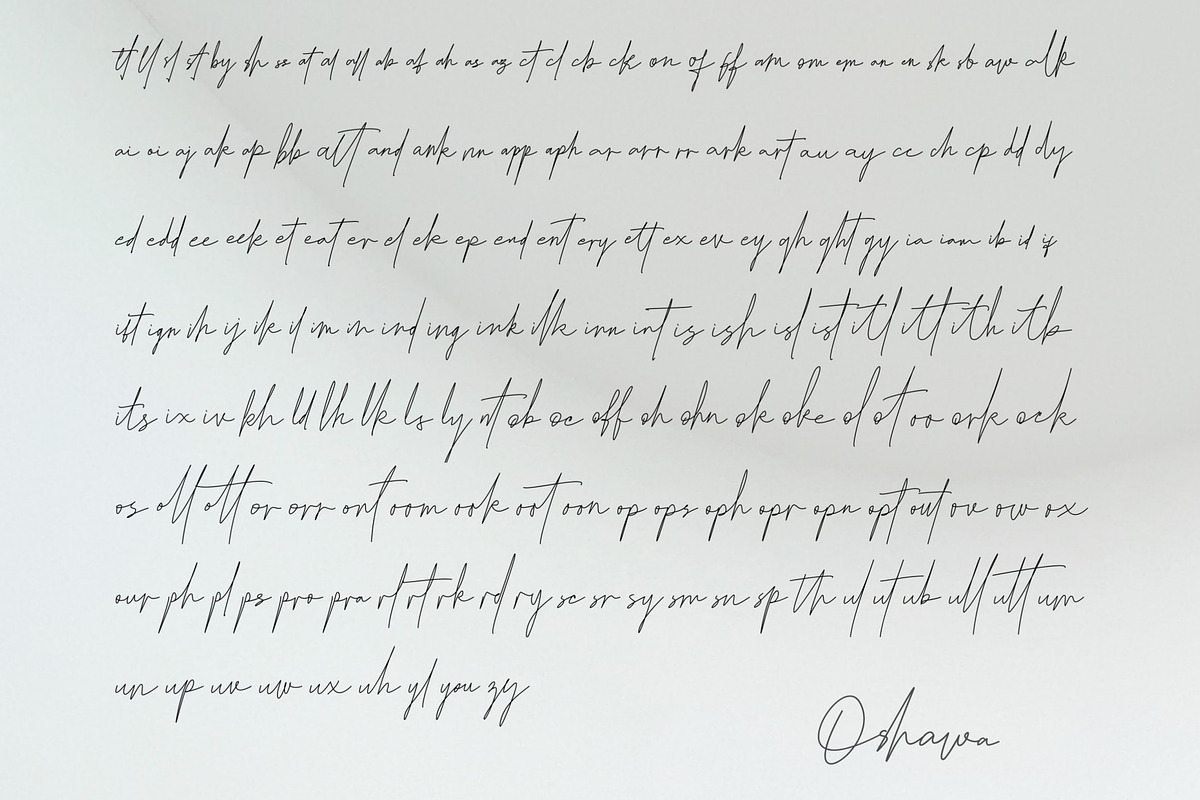 tt ll sl st by sh ss at al all ab af ah as az ct cl cb ck on of ff am om em an en sk sb aw alk
ai oi aj ak ap bb att and ank nn app aph ar arr rr ark art au ay cc ch cp dd dy
ed edd ee eek et eat er el ek ep end ent ery ett ex ev ey gh ght gy ia iam ib id if
ift ign ih ij ik il im in ind ing ink ilk inn int is ish isl ist itl itt ith itb
its ix iv kh ld lh lk ls ly nt ob oc off oh ohn ok oke ol ot oo ork ock
os oll ott or orr ont oom ook oot oon op ops oph opr opn opt out ov ow ox
our ph pl ps pro pra rl rt rk rd ry sc sr sy sm sn sp th ul ut ub ull utt um
un up uv uw ux uh yl you zy
Oshawa